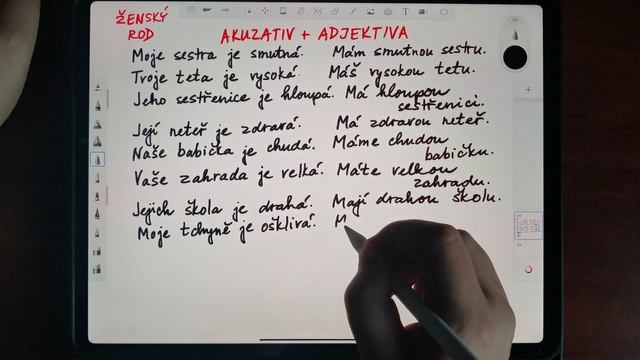 ŽENSKÝ ROD
AKUZATIV + ADJEKTIVA
Moje sestra je smutná. Mám smutnou sestru.
Troje teta je vysoká. Máš vysokou tetu.
Jeho sestřenice je hloupá. Má hloupou sestřenici.
Její neteř je zdravá. Má zdravou neteř.
Naše babička je chudá. Máme chudou babičku.
Vaše zahrada je velká. Máte velkou zahradu.
Jejich škola je drahá. Mají drahou školu.
Moje tchyně je ošklivá. M